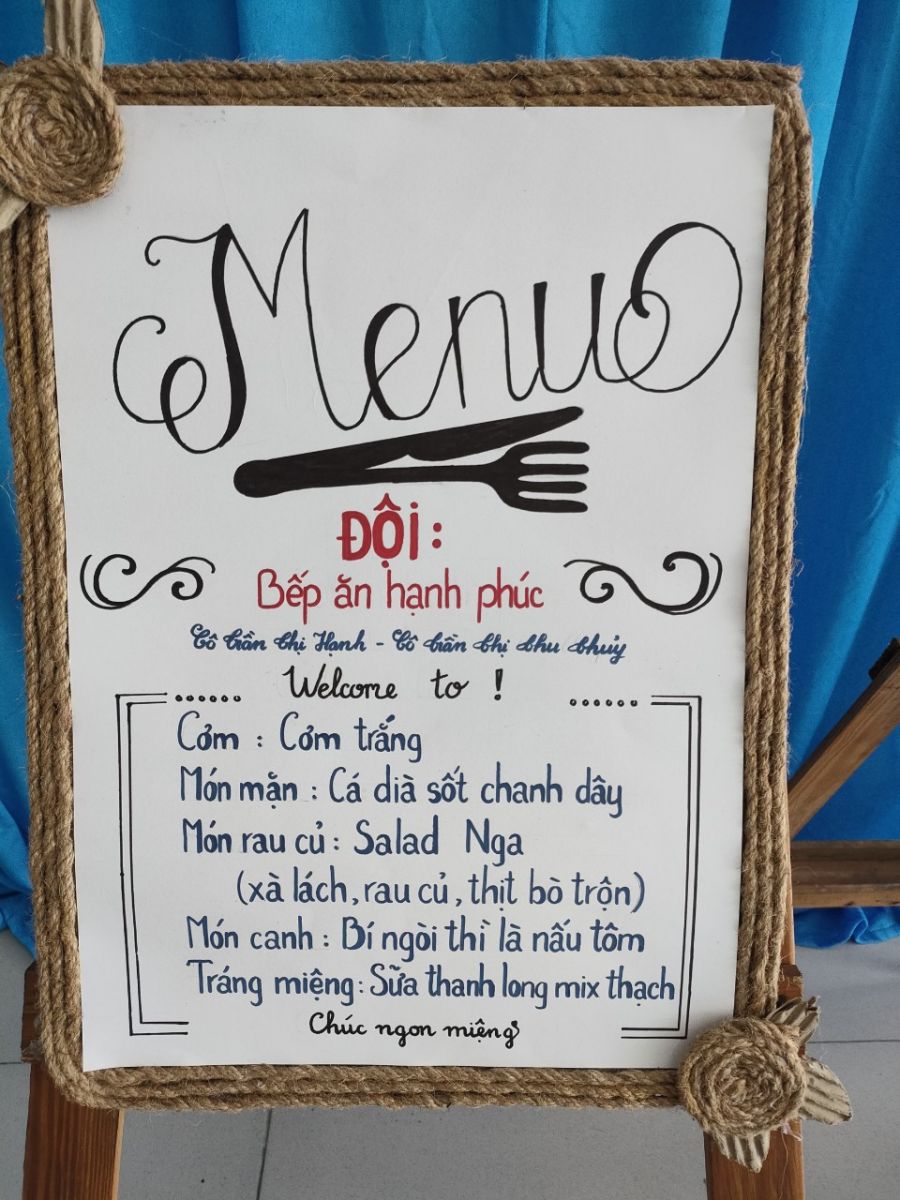 Menu
ĐỘI:
Bếp ăn hạnh phúc
Cô Trần Thị Hạnh - Cô Trần Thị Thu Thủy
Welcome to !
Cơm : Cơm trắng
Món mặn : Cá dìa sốt chanh dây
Món rau củ : Salad Nga
(xà lách, rau củ, thịt bò trộn)
Món canh : Bí ngòi thì là nấu tôm
Tráng miệng : Sữa thanh long mix thạch
Chúc ngon miệng